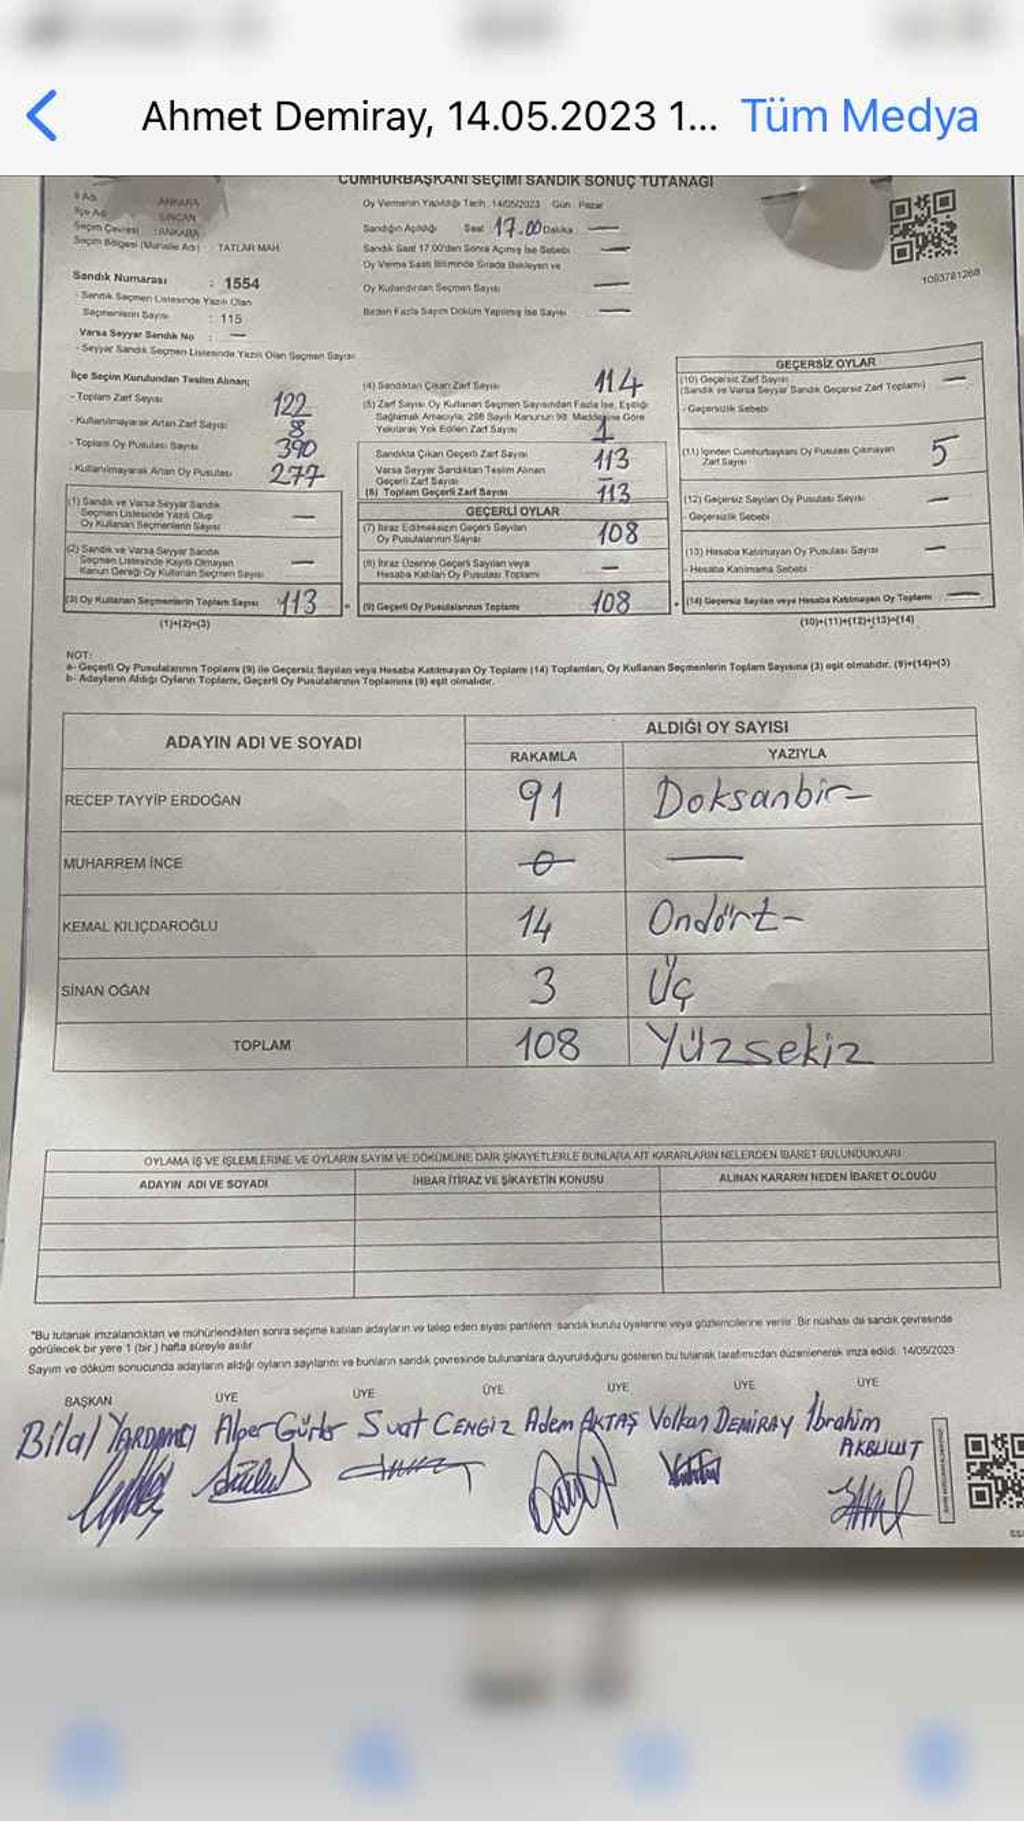 Ahmet Demiray, 14.05.2023 1... Tüm Medya
CUMHURBAŞKANI SEÇİMİ SANDIK SONUÇ TUTANAĞI
İl Adı ANKARA
İlçe Adı SİNCAN
Seçim Çevresi : ANKARA
Seçim Bölgesi (Mahalle Adı) : TATLAR MAH.
Sandık Numarası : 1554
- Sandık Seçmen Listesinde Yazılı Olan
Seçmenlerin Sayısı : 115
Varsa Seyyar Sandık No : —
- Seyyar Sandık Seçmen Listesinde Yazılı Olan Seçmen Sayısı
Oy Vermenin Yapıldığı Tarih : 14/05/2023 Gün : Pazar
Sandığın Açıldığı Saat 17.00 Dakika —
Sandık Saat 17.00'den Sonra Açılmış İse Sebebi —
Oy Verme Saati Bitiminde Sırada Bekleyen ve
Oy Kullandırılan Seçmen Sayısı —
Birden Fazla Sayım Döküm Yapılmış İse Sayısı —
1093781268
İlçe Seçim Kurulundan Teslim Alınan;
- Toplam Zarf Sayısı 122
- Kullanılmayarak Artan Zarf Sayısı 8
- Toplam Oy Pusulası Sayısı 390
- Kullanılmayarak Artan Oy Pusulası 277
(1) Sandık ve Varsa Seyyar Sandık
Seçmen Listesinde Yazılı Olup
Oy Kullanan Seçmenlerin Sayısı —
(2) Sandık ve Varsa Seyyar Sandık
Seçmen Listesinde Kayıtlı Olmayan
Kanun Gereği Oy Kullanan Seçmen Sayısı —
(3) Oy Kullanan Seçmenlerin Toplam Sayısı 113
(1)+(2)=(3)
(4) Sandıktan Çıkan Zarf Sayısı 114
(5) Zarf Sayısı Oy Kullanan Seçmen Sayısından Fazla İse, Eşitliği
Sağlamak Amacıyla, 298 Sayılı Kanunun 98. Maddesine Göre
Yakılarak Yok Edilen Zarf Sayısı 1
Sandıkta Çıkan Geçerli Zarf Sayısı 113
Varsa Seyyar Sandıktan Teslim Alınan
Geçerli Zarf Sayısı —
(6) Toplam Geçerli Zarf Sayısı 113
GEÇERLİ OYLAR
(7) İtiraz Edilmeksizin Geçerli Sayılan
Oy Pusulalarının Sayısı 108
(8) İtiraz Üzerine Geçerli Sayılan veya
Hesaba Katılan Oy Pusulası Toplamı —
(9) Geçerli Oy Pusulalarının Toplamı 108
GEÇERSİZ OYLAR
(10) Geçersiz Zarf Sayısı
(Sandık ve Varsa Seyyar Sandık Geçersiz Zarf Toplamı) —
- Geçersizlik Sebebi
(11) İçinden Cumhurbaşkanı Oy Pusulası Çıkmayan
Zarf Sayısı 5
(12) Geçersiz Sayılan Oy Pusulası Sayısı —
- Geçersizlik Sebebi
(13) Hesaba Katılmayan Oy Pusulası Sayısı —
- Hesaba Katılmama Sebebi
(14) Geçersiz Sayılan veya Hesaba Katılmayan Oy Toplamı —
(10)+(11)+(12)+(13)=(14)
NOT:
a- Geçerli Oy Pusulalarının Toplamı (9) ile Geçersiz Sayılan veya Hesaba Katılmayan Oy Toplamı (14) Toplamları, Oy Kullanan Seçmenlerin Toplam Sayısına (3) eşit olmalıdır. (9)+(14)=(3)
b- Adayların Aldığı Oyların Toplamı, Geçerli Oy Pusulalarının Toplamına (9) eşit olmalıdır.
ADAYIN ADI VE SOYADI ALDIĞI OY SAYISI
RAKAMLA YAZIYLA
RECEP TAYYİP ERDOĞAN 91 Doksanbir—
MUHARREM İNCE 0 —
KEMAL KILIÇDAROĞLU 14 Ondört—
SİNAN OĞAN 3 Üç
TOPLAM 108 Yüzsekiz
OYLAMA İŞ VE İŞLEMLERİNE VE OYLARIN SAYIM VE DÖKÜMÜNE DAİR ŞİKAYETLERLE BUNLARA AİT KARARLARIN NELERDEN İBARET BULUNDUKLARI
ADAYIN ADI VE SOYADI İHBAR İTİRAZ VE ŞİKAYETİN KONUSU ALINAN KARARIN NEDEN İBARET OLDUĞU
*Bu tutanak imzalandıktan ve mühürlendikten sonra seçime katılan adayların ve talep eden siyasi partilerin sandık kurulu üyelerine veya gözlemcilerine verilir. Bir nüshası da sandık çevresinde
görülecek bir yere 1 (bir) hafta süreyle asılır.
Sayım ve döküm sonucunda adayların aldığı oyların sayılarını ve bunların sandık çevresinde bulunanlara duyurulduğunu gösteren bu tutanak tarafımızdan düzenlenerek imza edildi. 14/05/2023
BAŞKAN ÜYE ÜYE ÜYE ÜYE ÜYE ÜYE
Bilal YARDIMCI Alper Gürbr Suat CENGİZ Adem AKTAŞ Volkan DEMİRAY İbrahim
AKBULUT